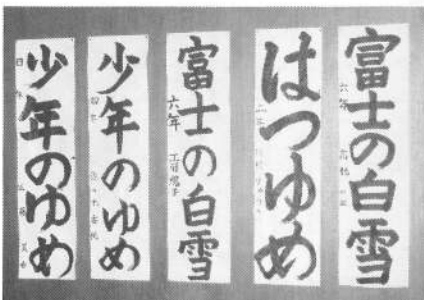 富士の白雪
六年
はつゆめ
富士の白雪
六年
少年のゆめ
四年
少年のゆめ
四年